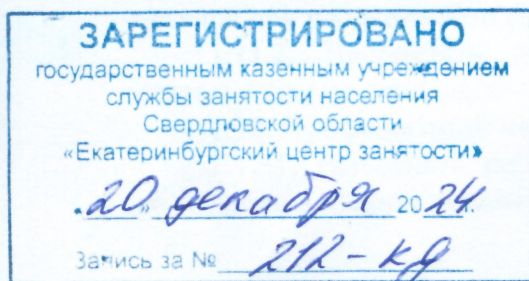 ЗАРЕГИСТРИРОВАНО
государственным казенным учреждением
службы занятости населения
Свердловской области
«Екатеринбургский центр занятости»
«20» декабря 2024г.
Запись за № 212-кд